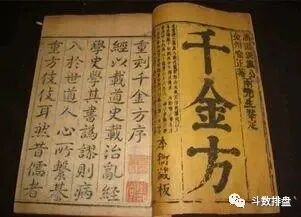 千金方
本衙藏板
重刻千金方序
經以載道史載治亂經
學史學其書譌謬則病
入於世道人心所繫綦
重方伎伎耳然昔儒者
斗数排盘